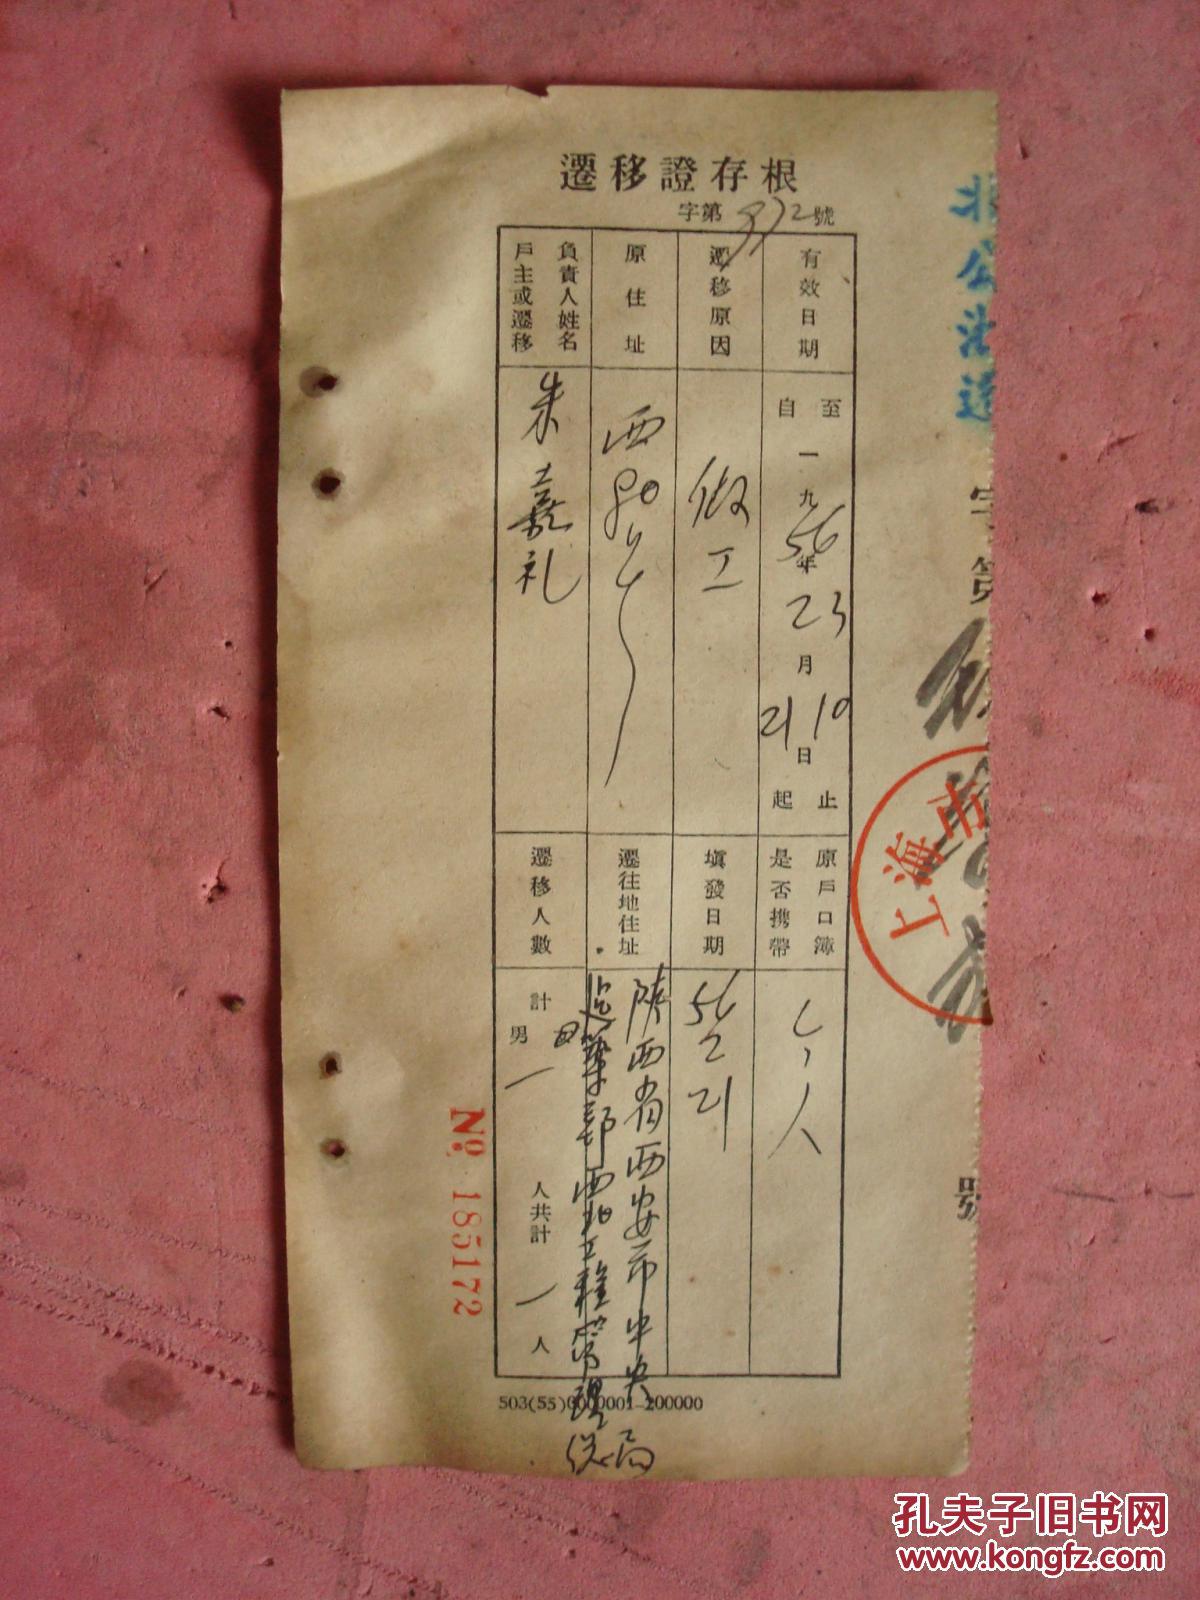 遷移證存根
字第 372 號
戶主或遷移
負責人姓名
朱嘉礼
原住址
西
遷移原因
做工
有效日期
自一九56年2月21日起
至 3 10 止
遷移人數
計 男 一
人共計 一 人
遷往地住址
陝西省西安市中央
建築部西北工程管理總局
填發日期
56 2 21
原戶口簿
是否攜帶
503(55)0000001-200000
No. 185172
上海市
字第
號
孔夫子旧书网
www.kongfz.com